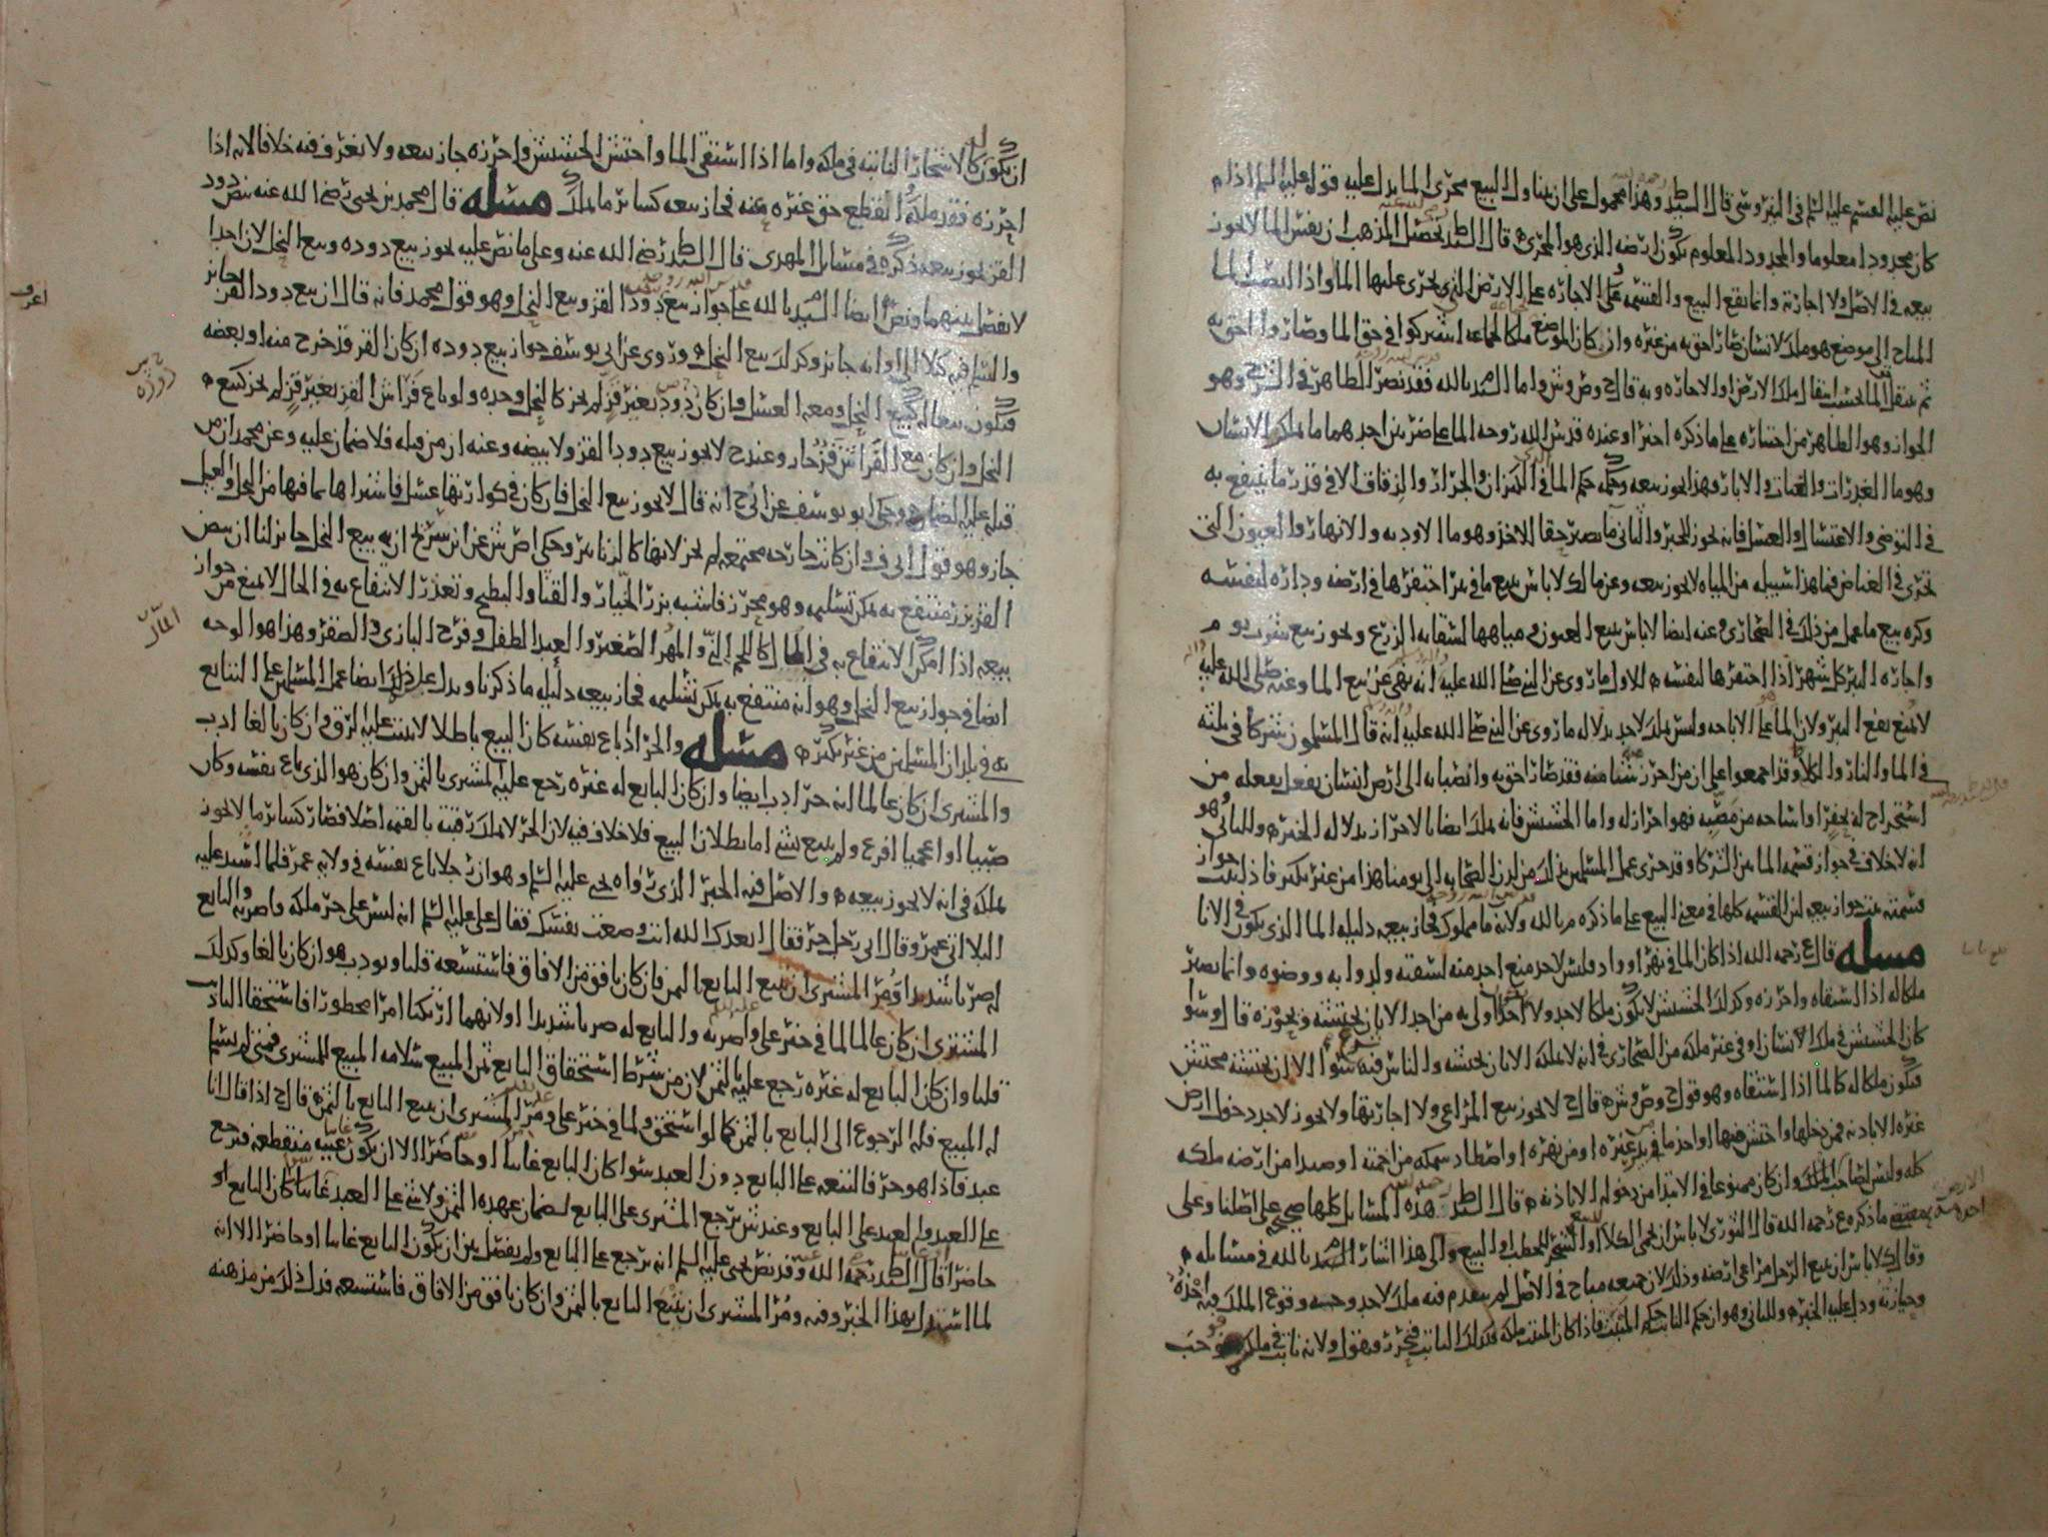 نص عليه القسم عليه السلم في النيروسي قال السيد ط وهذا محمول على ان يتناول البيع مجرى الما يدل عليه قوله عليه السلم اذا
كان محدودا معلوما والمحدود المعلوم يكون ارضه الذي هو المجرى قال السيد ط تحصيل المذهب ان نفس الما لا يجوز
بيعه في الاصل ولا اجارته وانما يقع البيع والقسمه على الاجاره على الارض التي يجري عليها الما واذا انصب الما
المباح الى موضع هو ملك لانسان صار احق به من غيره وان كان الموضع ملكا لجماعه اشتركوا في حق الما وصاروا احق به
ثم ينتقل الما بحسب انتقال ملك الارض او الاجاره وبه قال ح وص وش واما م بالله فقد نصر الظاهر في الشرح وهو
الجواز وهو الظاهر من اختياره على ما ذكره اخيرا وعنده قدس الله روحه الما على ضربين احدهما ما يملكه الانسان
وهو ما الغدرات والقنات والابار فهذا يجوز بيعه وحكمه حكم الما في الكيزان والجرار والزقاق الا في قدر ما ينتفع به
في التوضي والاغتسال والغسل فانه يجوز للخبر والثاني ما يصير حقا للاخذ وهو ما الاوديه والانهار والعيون التي
تجري في الغياض فما هذا سبيله من المياه لا يجوز بيعه وعن مالك لا باس ببيع ما في بئر احتفرها في ارضه وداره لنفسه
وكره بيع ما عمل من ذلك في الصحاري وعنه ايضا لا باس ببيع العيون ومياهها لسقايه الزرع ويجوز بيع شرب يوم
واجاره البئر كل شهر اذا احتفرها لنفسه للاول ما روي عن النبي صلى الله عليه انه نهى عن بيع الما وعنه صلى الله عليه
لا يمنع نقع البئر ولان الما على الاباحه وليس بملك لاحد بدلاله ما روي عن النبي صلى الله عليه انه قال المسلمون شركا في ثلثه
في الما والنار والكلا وقد اجمعوا على ان من احرز شيا منه فقد صار احق به وانصبابه الى ارض انسان بفعل يفعله من
استخراج له بحفر او اساحه من مصبه فهو احراز له واما الحشيش فانه يملك ايضا بالاحراز بدلاله الخبر وللثاني هو
انه لا خلاف في جواز قسمه الما بين الشركا وقد جرى عمل المسلمين بذلك من لدن الصحابه الى يومنا هذا من غير نكير فاذا ثبت جواز
قسمته ثبت جواز بيعه لان القسمه كلها في معنى البيع على ما ذكره م بالله ولانه ما مملوك فجاز بيعه دليله الما الذي يكون في الانا
مسله قال ع رحمه الله اذا كان الما في نهر او واد فليس لاحد منع احد منه لشفته ولدوابه ووضوه وانما يصير
ملكا له اذا استقاه واحرزه وكذلك الحشيش لا يكون ملكا لاحد ولا احد اولى به من احد الا بان يحتشه ويحوزه قال وسوا
كان الحشيش في ملك الانسان او في غير ملكه من الصحاري في انه لا يملكه الا بان يحتشه والناس فيه شرع سوا الا ان يحتشه محتش
فيكون ملكا له كالما اذا استقاه وهو قول ح وص وش قال ح لا يجوز بيع المراعي ولا اجارتها ولا يجوز لاحد دخول ارض
غيره الا باذنه فمن دخلها واحتش منها او اخذ ما في بئر غيره او من نهره او اصطاد سمكه من اجمته او صيدا من ارضه ملكه
كله وليس لصاحب الملك وان كان ممنوعا في الابتدا من دخوله الا باذنه قال السيد ط هذه المسايل كلها صحيح على اصلنا وعلى
ما ذكره ع رحمه الله قال الثوري لا باس ان يحمى الكلا او الشجر للحطب او البيع والى هذا اشار م بالله في مسايله
وقال ك لا باس ان يبيع الرجل مراعي ارضه وذلك لان جميعه مباح في الاصل لم يتقدم فيه ملك لاحد وجهه وقوع الملك فيه اخذه
وحيازته ودل عليه الخبر وللثاني وهو ان حكم النابت حكم المنبت فاذا كان المنبت ملكه فكذلك النابت فتحرر فنقول ولانه نابت في ملكه فوجب
ان يكون له كالاشجار النابته في ملكه واما اذا استقى الما واحتش الحشيش واحرزه جاز بيعه ولا نعرف فيه خلافا لانه اذا
احرزه فقد ملكه وانقطع حق غيره عنه فجاز بيعه كساير ما يملك مسله قال محمد بن يحيى رضي الله عنه بيض دود
القز يجوز بيعه ذكره في مسايل المهدي قال السيد ط رضي الله عنه وعلى ما نص عليه يجوز بيع دوده وبيع النحل لان احدا
لا يفصل بينهما ونص ايضا م بالله على جواز بيع دود القز وبيع النحل وهو قول محمد فانه قال ان بيع دود القز جايز
والسلم فيه كذلك الى اوانه جايز وكذلك بيع النحل وروي عن ابي يوسف جواز بيع دوده ان كان القز قد خرج منه او بعضه
فيكون بيعا له كبيع النحل ومعه العسل وان كان دود بغير قز لم يجز كالنحل وحده ولو باع فراش القز بغير قز لم يجز كبيع
النحل وان كان مع الفراش قز جاز وعند ح لا يجوز بيع دود القز ولا بيضه وعنه ان من قتله فلا ضمان عليه وعن محمد ان من
قتله عليه الضمان وحكى ابو يوسف عن ابي ح انه قال لا يجوز بيع النحل فان كان في كوارتها عسل فاشتراها بما فيها من النحل والعسل
جاز وهو قول ابي ف وان كانت خارجه مجتمعه لم يجز لانها كالزنابير وحكى اص ش عن ابن سريج ان بيع النحل جايز لنا ان بيض
القز بزر منتفع به يمكن تسليمه وهو محرز فاشبه بزر الخيار والقثا والبطيخ وتعذر الانتفاع به في الحال لا يمنع من جواز
بيعه اذا امكن الانتفاع به في المال كاللحم الني والمهر الصغير والعبد الطفل وفرخ البازي والصقر وهذا هو الوجه
ايضا في جواز بيع النحل وهو انه منتفع به يمكن تسليمه فجاز بيعه دليله ما ذكرنا ويدل على ذلك ايضا عمل المسلمين على التبايع
به في بلدان المسلمين من غير نكير مسله والحر اذا باع نفسه كان البيع باطلا لا يثبت عليه الرق وان كان بالغا ادب
والمشتري ان كان عالما انه حر ادب ايضا وان كان البايع له غيره رجع عليه المشتري بالثمن وان كان هو الذي باع نفسه وكان
صبيا او اعجميا افزع ولم يتبع بشي اما بطلان البيع فلا خلاف فيه لان الحر لا يملك رقبته بالقيمه اصلا فصار كساير ما لا يجوز
تملكه في انه لا يجوز بيعه والاصل فيه الخبر الذي رواه يحيى عليه السلم وهو ان رجلا باع نفسه في ولايه عمر فلما اشتد عليه
البلا اتى عمر وقال اني رجل حر فقال ابعدك الله انت وضعت نفسك فقال علي عليه السلم انه ليس على حر ملكه فاضربه والبايع
له ضربا شديدا ومر المشتري ان يتبع البايع بالثمن فان كان بافق من الافاق فاستسعه قلنا ويودب هو ان كان بالغا وكذلك
المشتري ان كان عالما لما في خبر علي واضربه والبايع له ضربا شديدا ولانهما ارتكبا امرا محظورا فاستحقا التاديب
قلنا وان كان البايع له غيره رجع عليه بالثمن لان من شرط استحقاق البايع ثمن المبيع سلامه المبيع للمشتري فمتى لم يسلم
له المبيع فله الرجوع الى البايع بالثمن كما لو استحق ولما في خبر علي ومر المشتري ان يتبع البايع بالثمن قال ح اذا قال انا
عبد فاذا هو حر فالتبعه على البايع دون العبد سوا كان البايع غايبا او حاضرا الا ان يكون غيبه منقطعه فيرجع
على العبد والعبد على البايع وعند ش يرجع المشتري على البايع لضمان عهده الثمن ولا شي على العبد غايبا كان البايع او
حاضرا قال السيد ط رحمه الله وقد نص يحيى عليه السلم انه يرجع على البايع ولم يفصل بين ان يكون البايع غايبا او حاضرا الا انه
لما استدل بهذا الخبر وفيه ومر المشتري ان يتبع البايع بالثمن وان كان بافق من الافاق فاستسعه فدل ذلك من مذهبه